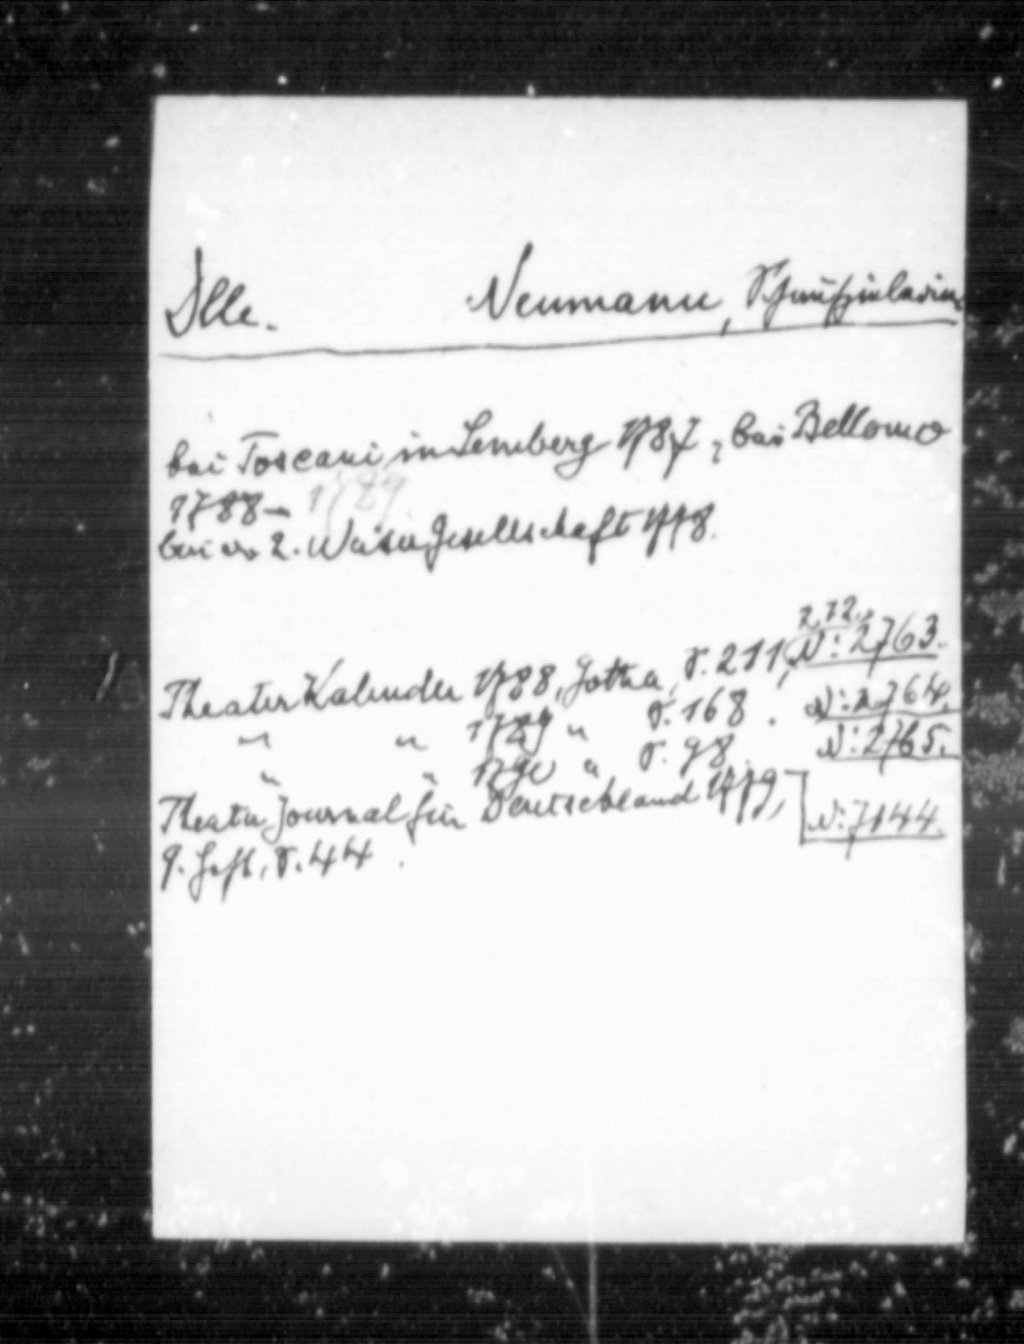 Dlle. Neumann, Schauspielerin
bei Toscani in Lemberg 1787, bei Bellomo
1788 – 1789
bei der 2. Waisergesellschaft 1778.
272.
Theater Kalender 1788, Gotha, S. 211, N: 2763.
" " 1789 " S. 168. N: 2764.
" " 1790 " S. 98 N: 2765.
Theater Journal für Deutschland 1779,
9. Heft, S. 44. N: 7144.